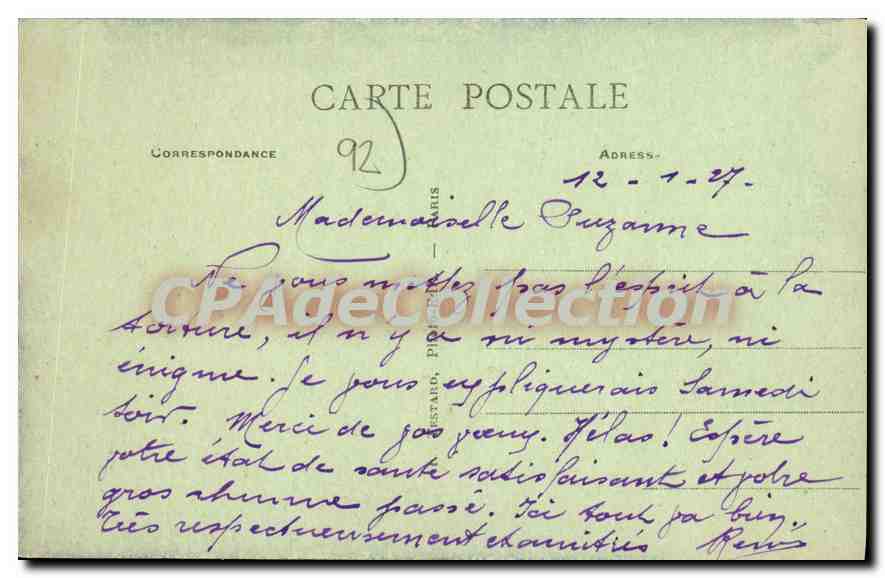 CARTE POSTALE
CORRESPONDANCE
92
ADRESSE
12 - 1 - 27.
Mademoiselle Suzanne
Ne vous mettez pas l'esprit à la
torture, il n'y a ni mystère, ni
énigme. Je vous expliquerais Samedi
soir. Merci de vos voeux. Hélas! Espère
votre état de santé satisfaisant et votre
gros rhume passé. Ici tout va bien.
Très respectueusement et amitiés
CPAgeCollection
PARIS